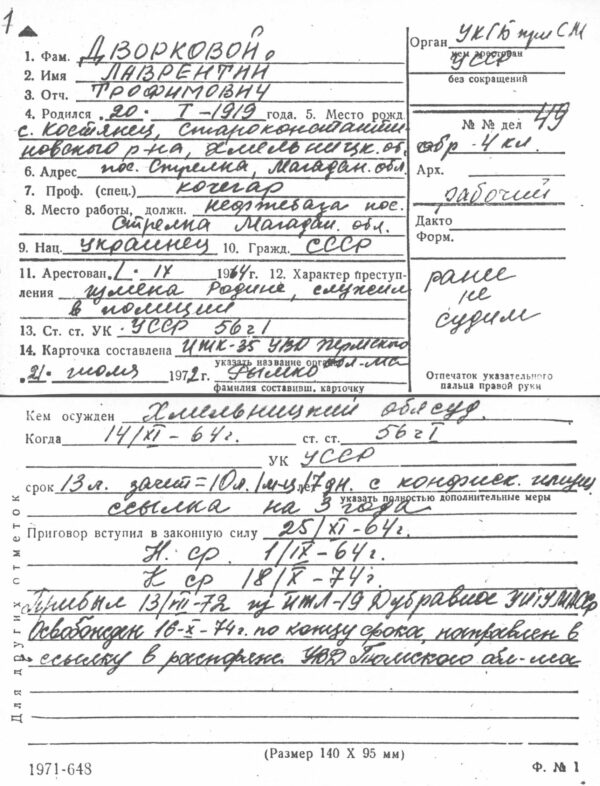 1
1. Фам. ДВОРКОВОЙ
2. Имя ЛАВРЕНТИЙ
3. Отч. ТРОФИМОВИЧ
4. Родился 20. I-1919 года. 5. Место рожд.
с. Костянец, Староконстанти
новского р-на, Хмельницк. об.
6. Адрес пос. Стрелка, Магадан. обл
7. Проф. (спец.) кочегар
8. Место работы, должн. нефтебаза пос.
Стрелка Магадан. обл.
9. Нац. украинец 10. Гражд. СССР
11. Арестован 1. IX 1964г. 12. Характер преступ-
ления измена Родине, служил
в полиции
13. Ст. ст. УК УССР 56 ч I
14. Карточка составлена ИТК-35 УВД Пермского
указать название орг обл-та
21. июля 1972г.
фамилия составивш. карточку
Орган УКГБ при СМ
кем арестован
УССР
без сокращений
№ № дел 49
обр-4 кл.
Арх.
рабочий
Дакто
Форм.
ранее
не
судим
Отпечаток указательного
пальца правой руки
Кем осужден Хмельницкий облсуд.
Когда 14/XI-64г. ст. ст. 56 ч I
УК УССР
срок 13 л. зачет=10л. 1 м-ц 17 дн. с конфиск. имущ
указать полностью дополнительные меры
ссылка на 3 года
Приговор вступил в законную силу 25/XI-64г.
Н. ср. 1/IX-64г.
К ср 18/X-74г.
Прибыл 13/VII-72 из ИТЛ-19 Дубравное УИТУ МАССР
Освобожден 16-X-74г. по концу срока, направлен в
ссылку в распоряж. УВД Томского обл-та
Для других отметок
(Размер 140 X 95 мм)
1971-648
Ф. № 1